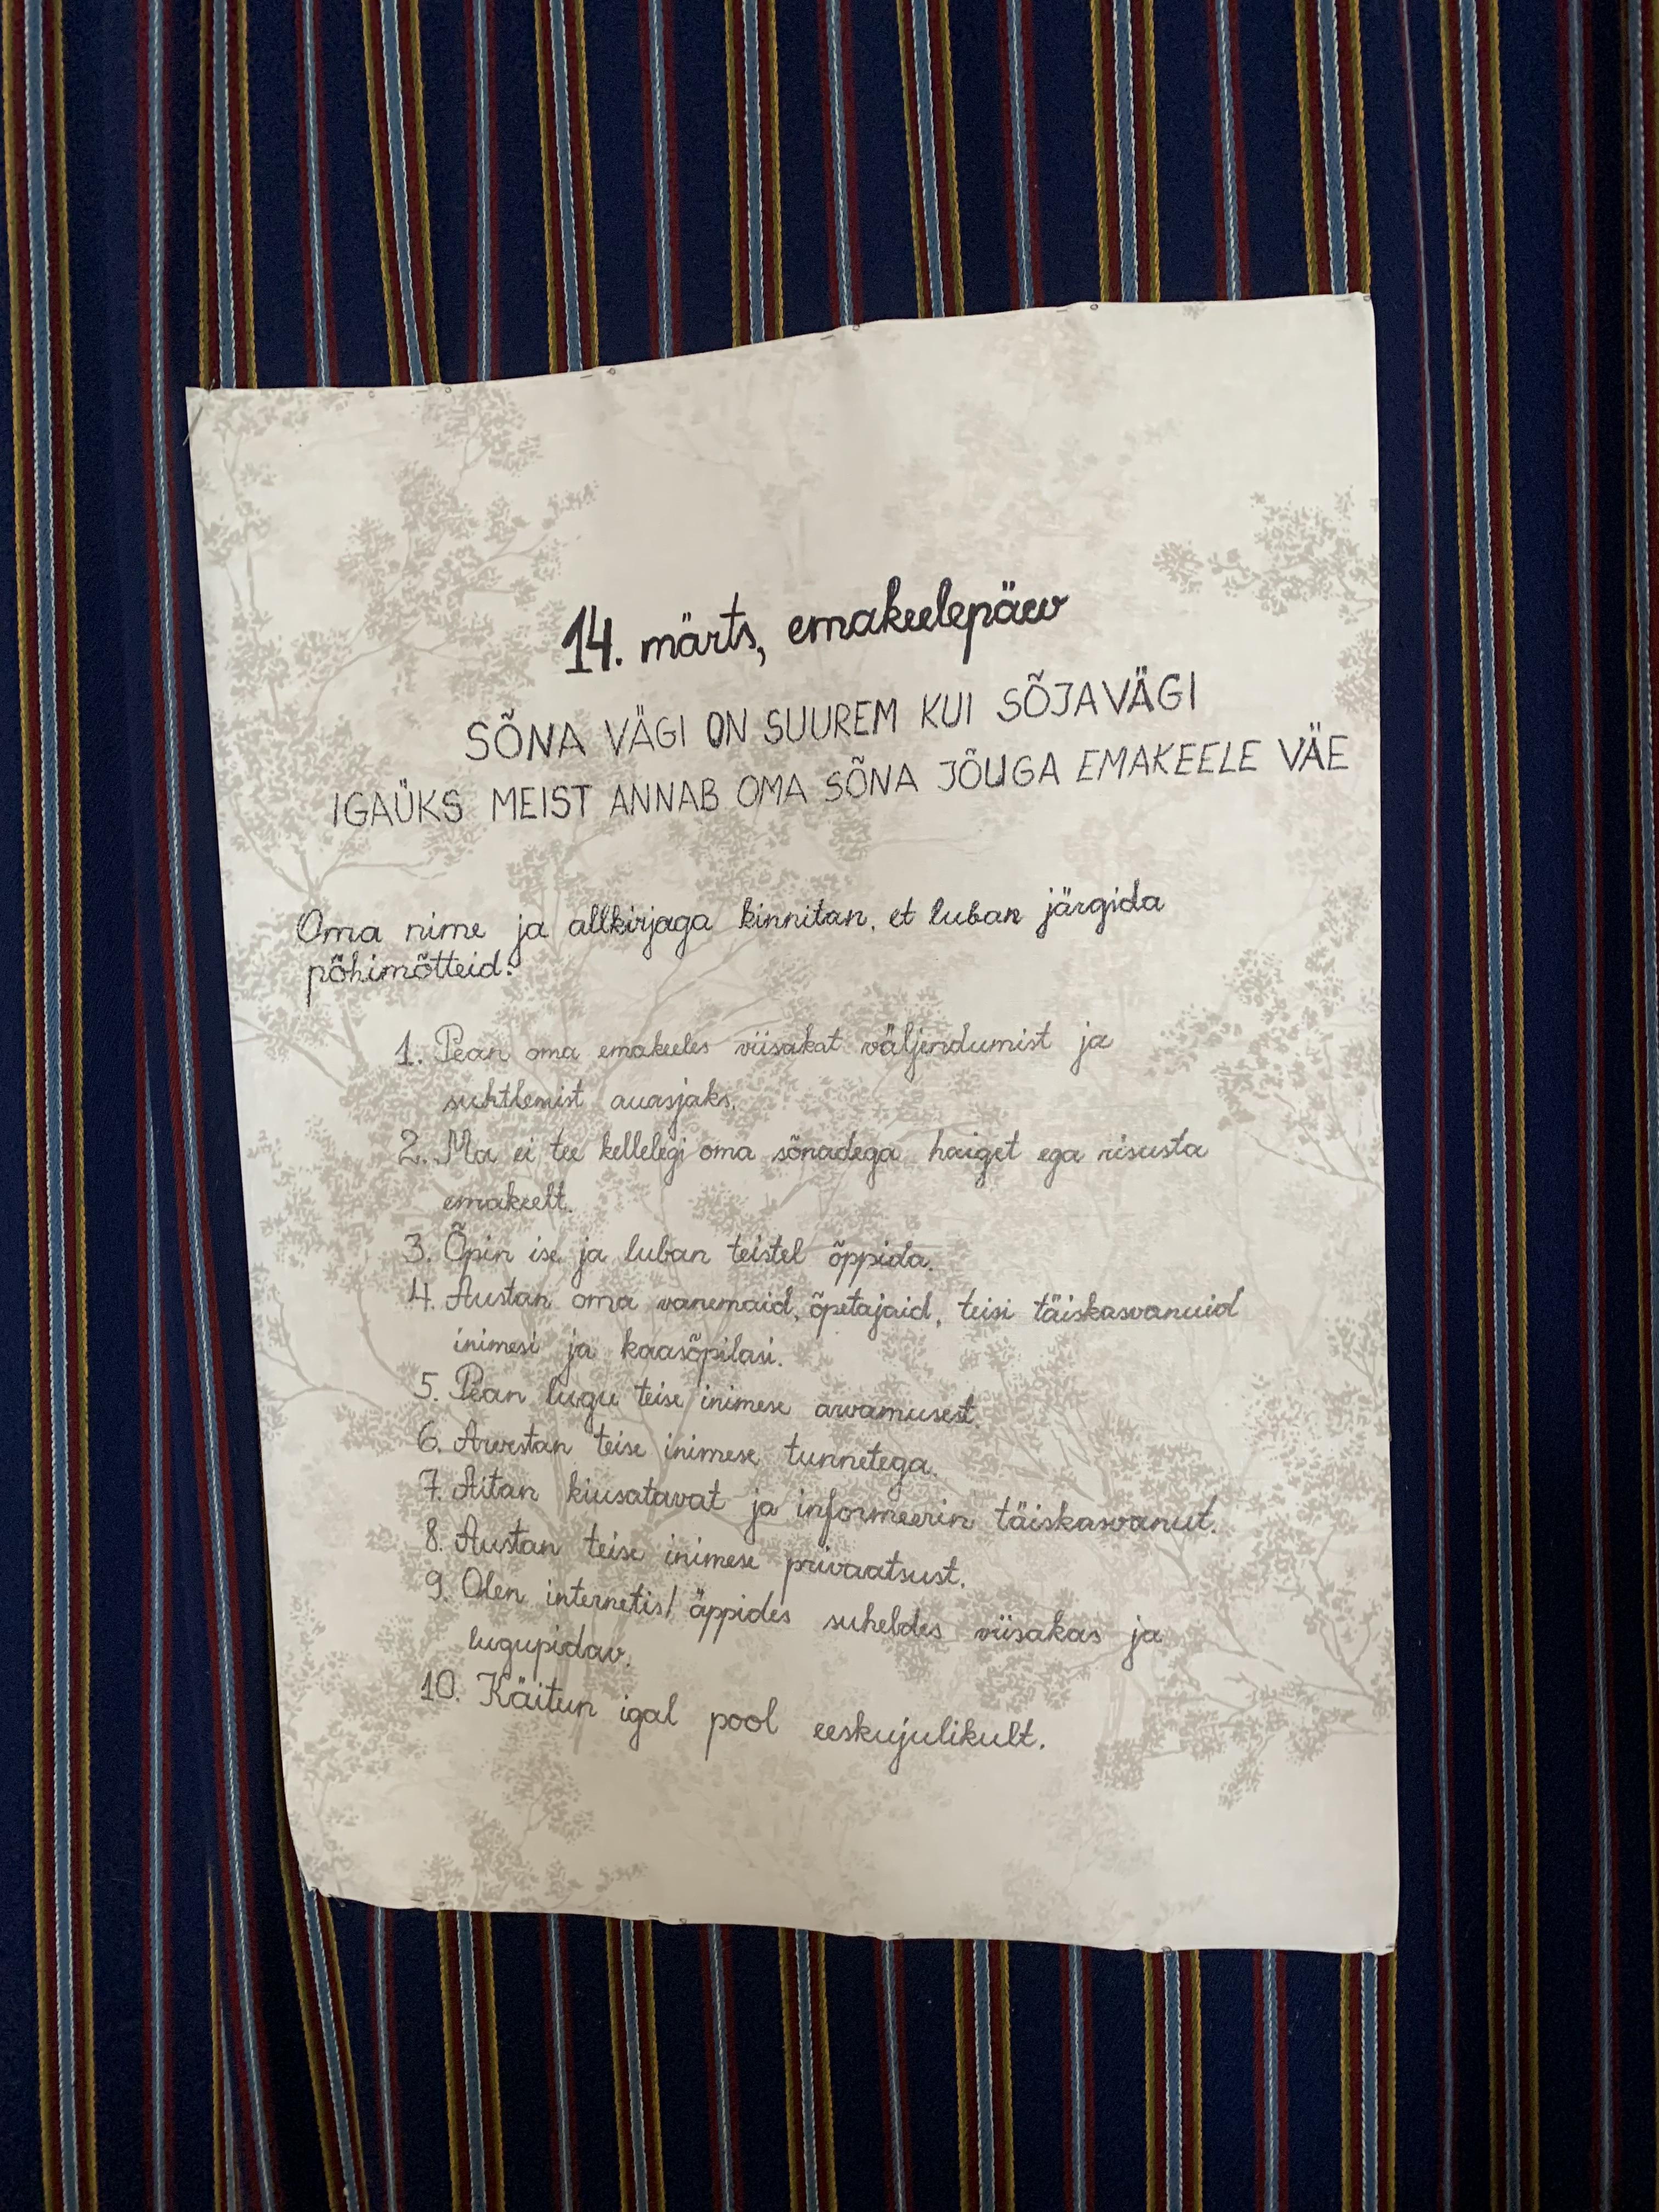 14. märts, emakeelepäev
SÕNA VÄGI ON SUUREM KUI SÕJAVÄGI
IGAÜKS MEIST ANNAB OMA SÕNA JÕUGA EMAKEELE VÄE
Oma nime ja allkirjaga kinnitan, et luban järgida
põhimõtteid:
1. Pean oma emakeeles viisakat väljendumist ja
suhtlemist auasjaks.
2. Ma ei tee kellelegi oma sõnadega haiget ega risusta
emakeelt.
3. Õpin ise ja luban teistel õppida.
4. Austan oma vanemaid, õpetajaid, teisi täiskasvanuid
inimesi ja kaasõpilasi.
5. Pean lugu teise inimese arvamusest
6. Arvestan teise inimese tunnetega.
7. Aitan kiusatavat ja informeerin täiskasvanut.
8. Austan teise inimese privaatsust.
9. Olen internetis/ äppides suheldes viisakas ja
lugupidav.
10. Käitun igal pool eeskujulikult.